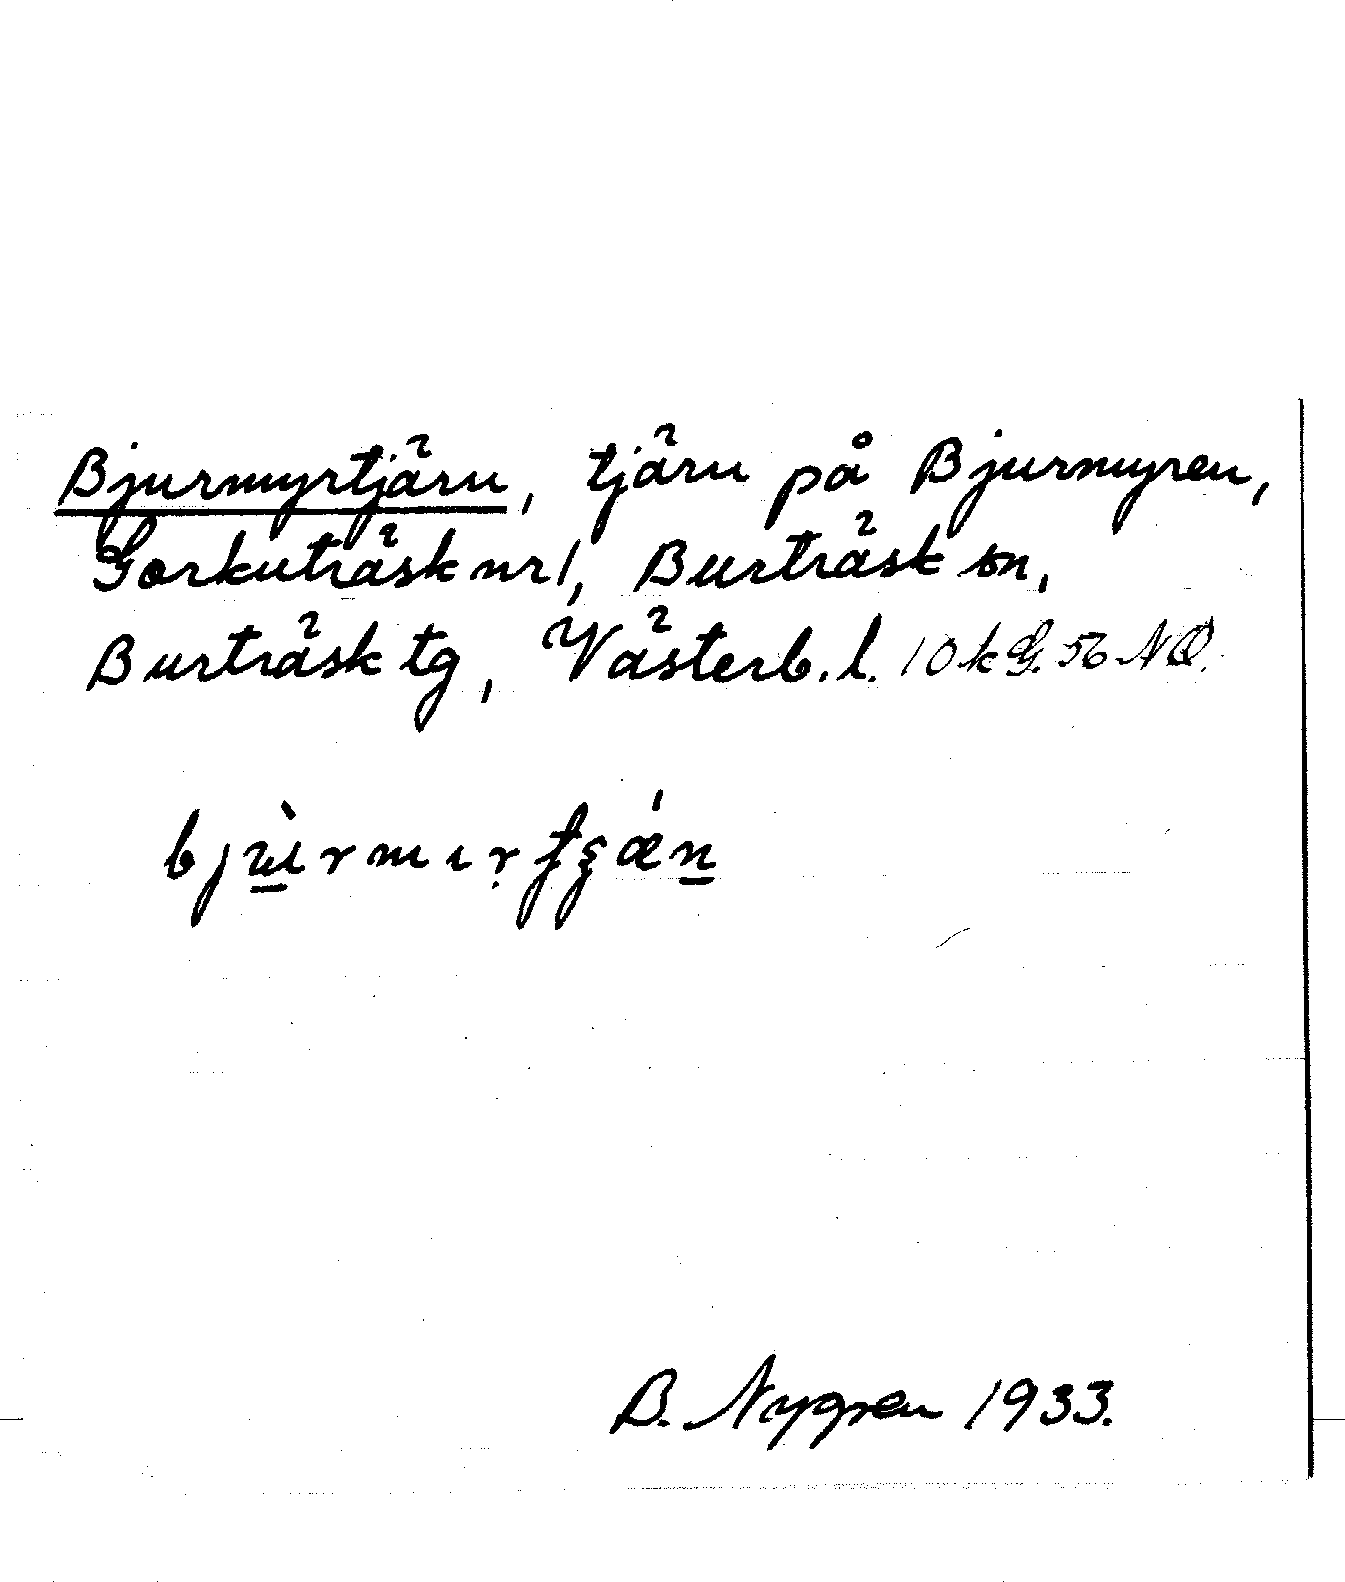 Bjurmyrtjärn, tjärn på Bjurmyren,
Gorkuträsk nr 1, Burträsk sn,
Burträsk tg, Västerb. l. 10 k G. 56 NO.
bjùrmırtʂǽn
B. Nygren 1933.